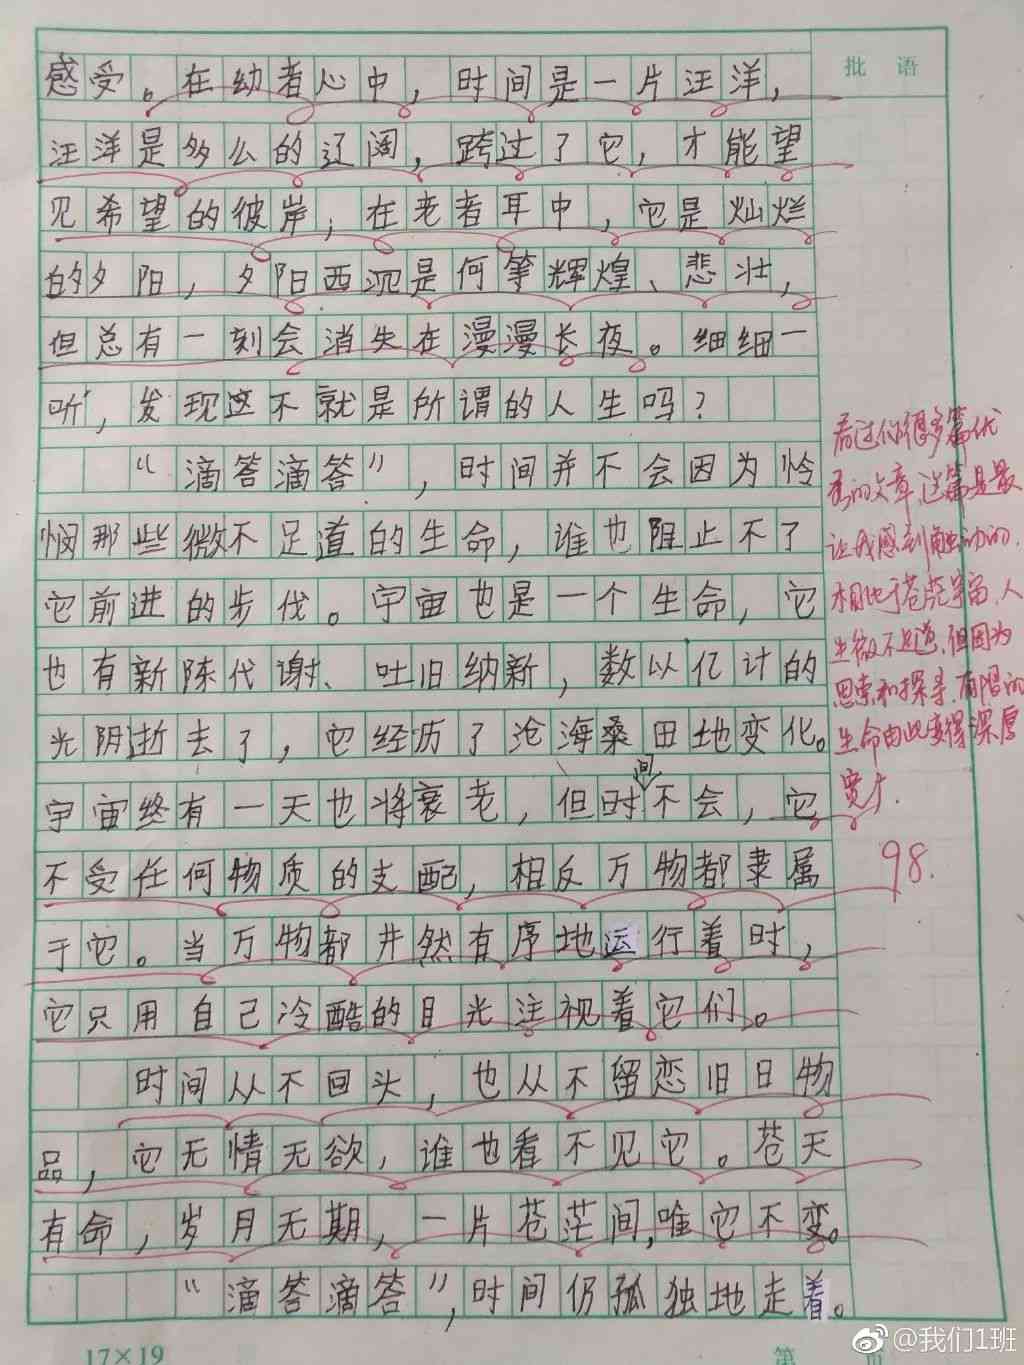 批语
感受。在幼者心中，时间是一片汪洋，
汪洋是多么的辽阔，跨过了它，才能望
见希望的彼岸；在老者耳中，它是灿烂
的夕阳，夕阳西沉是何等辉煌、悲壮，
但总有一刻会消失在漫漫长夜。细细一
听，发现这不就是所谓的人生吗？
“滴答滴答”，时间并不会因为怜
悯那些微不足道的生命，谁也阻止不了
它前进的步伐。宇宙也是一个生命，它
也有新陈代谢、吐旧纳新，数以亿计的
光阴逝去了，它经历了沧海桑田地变化。
宇宙终有一天也将衰老，但时间不会，它
不受任何物质的支配，相反万物都隶属
于它。当万物都井然有序地运行着时，
它只用自己冷酷的目光注视着它们。
时间从不回头，也从不留恋旧日物
品，它无情无欲，谁也看不见它。苍天
有命，岁月无期，一片苍茫间，唯它不变。
“滴答滴答”，时间仍孤独地走着。
看过你很多篇优
秀的文章，这篇是最
让我感到触动的，
相比于苍茫宇宙，人
生微不足道，但因为
思索和探寻，有限的
生命由此变得深厚
宽广.
98.
17×19
第 页
@我们1班